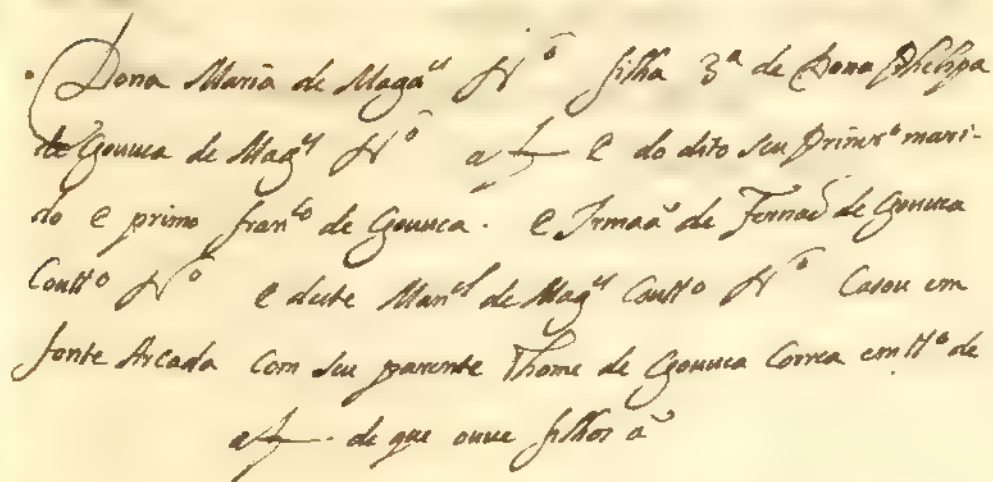 Dona Maria de Magães Nº filha 3ª de Dona Phelipa
de Gouuea de Mages Nº af e do dito seu Primrº mari-
do e primo franco de Gouuea. e Irmaã de Fernaõ de Gouuea
Coutto Nº e deste Manel de Mages Coutto Nº Casou em
fonte Arcada Com seu parente Thome de Gouuea Correa em ttº de
af de que ouue filhos a